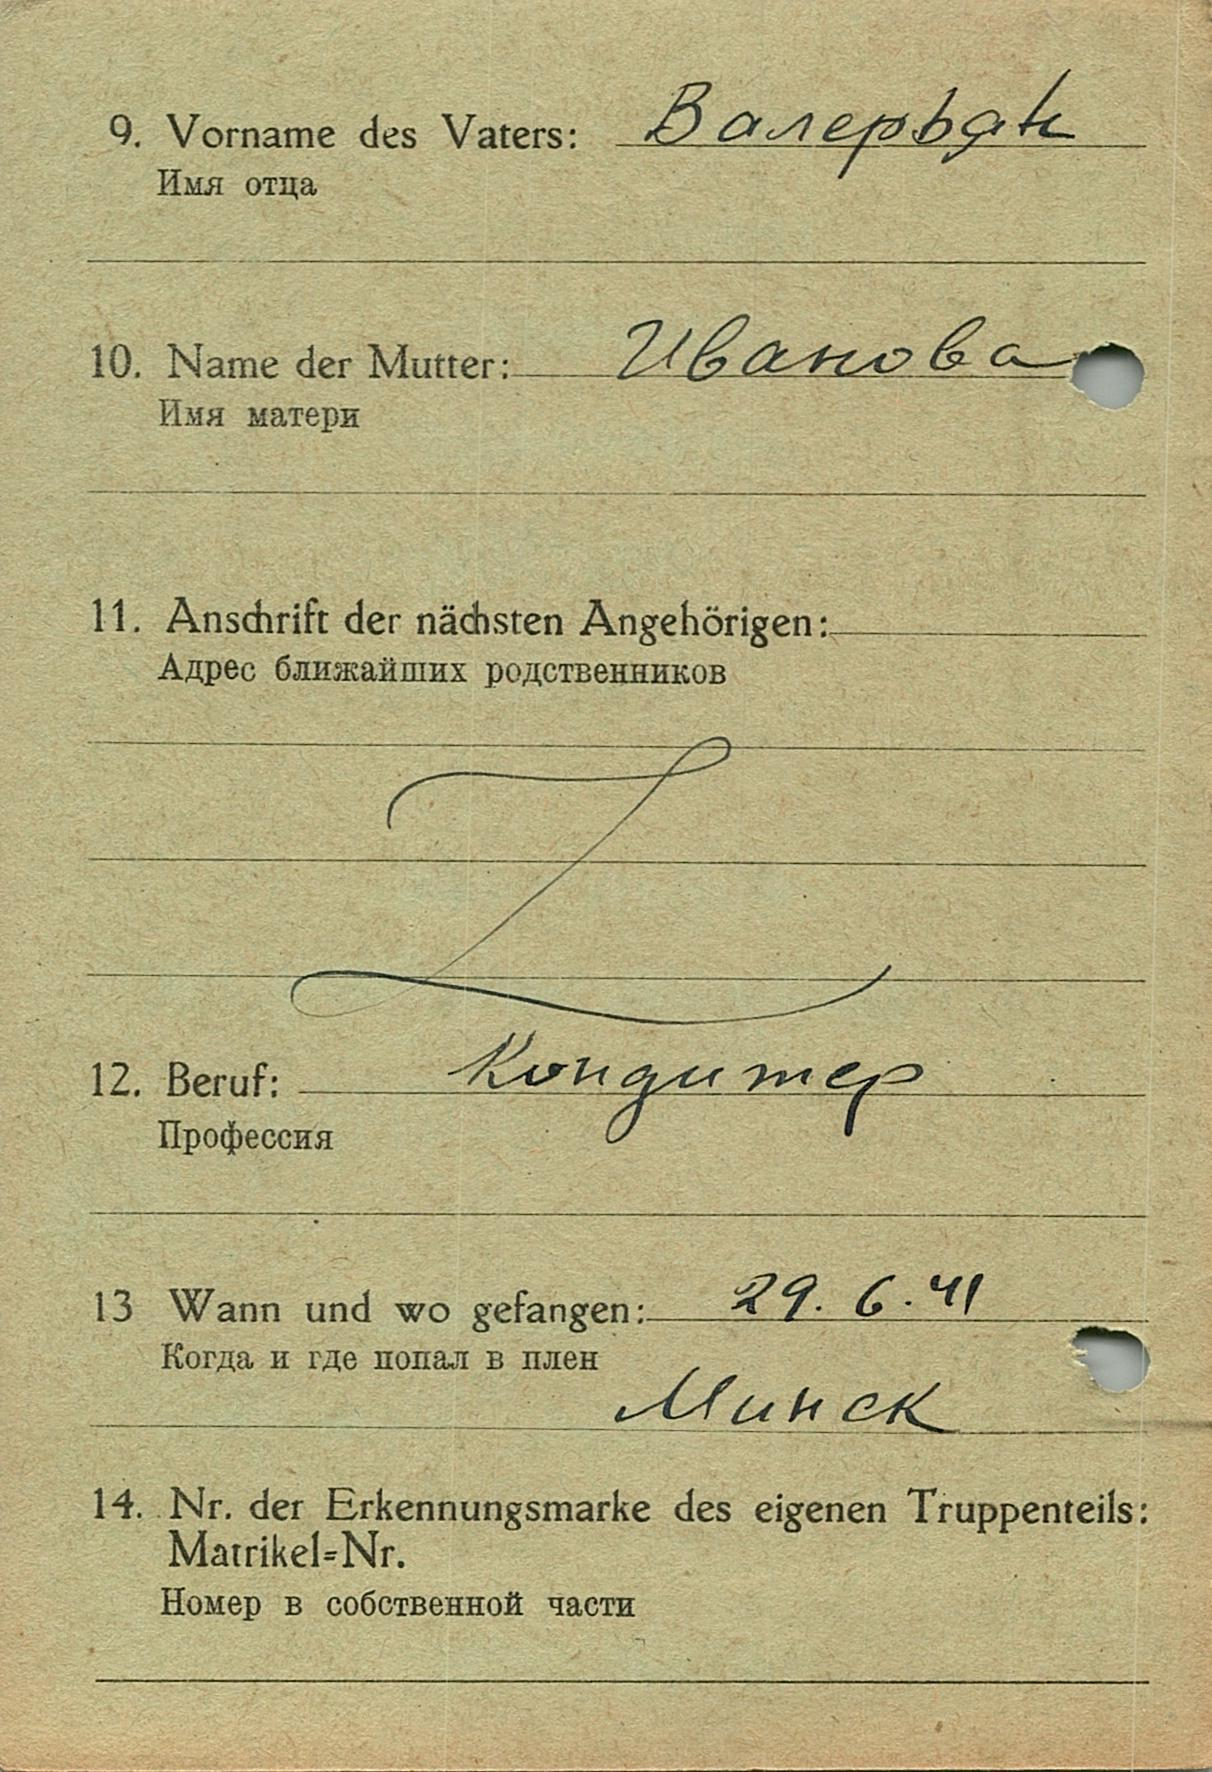 9. Vorname des Vaters: Валерьян
Имя отца
10. Name der Mutter: Иванова
Имя матери
11. Anschrift der nächsten Angehörigen:
Адрес ближайших родственников
12. Beruf: Кондитер
Профессия
13 Wann und wo gefangen: 29. 6. 41
Когда и где попал в плен
Минск
14. Nr. der Erkennungsmarke des eigenen Truppenteils:
Matrikel=Nr.
Номер в собственной части